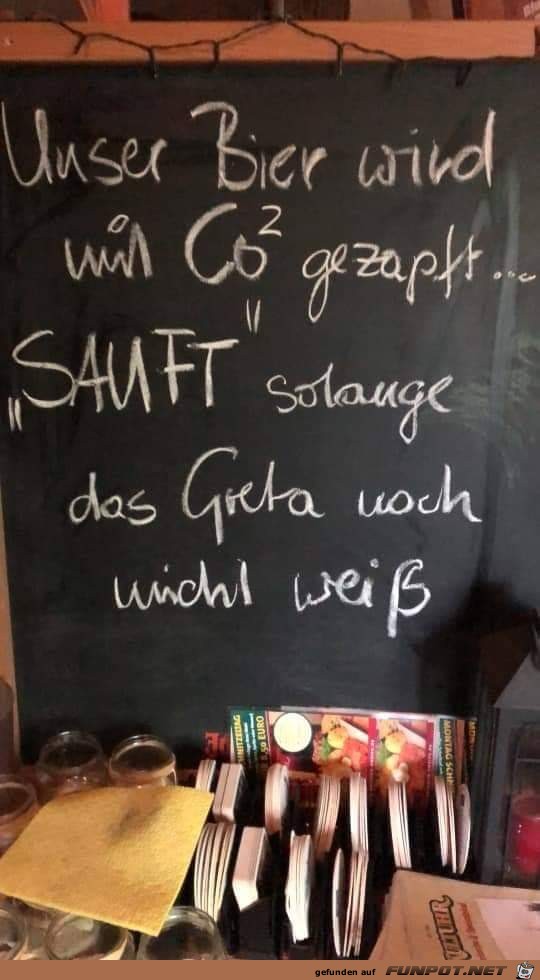 Unser Bier wird
mit Co² gezapft...
„SAUFT" solange
das Greta noch
nicht weiß
MONTAG SCH
gefunden auf FUNPOT.NET